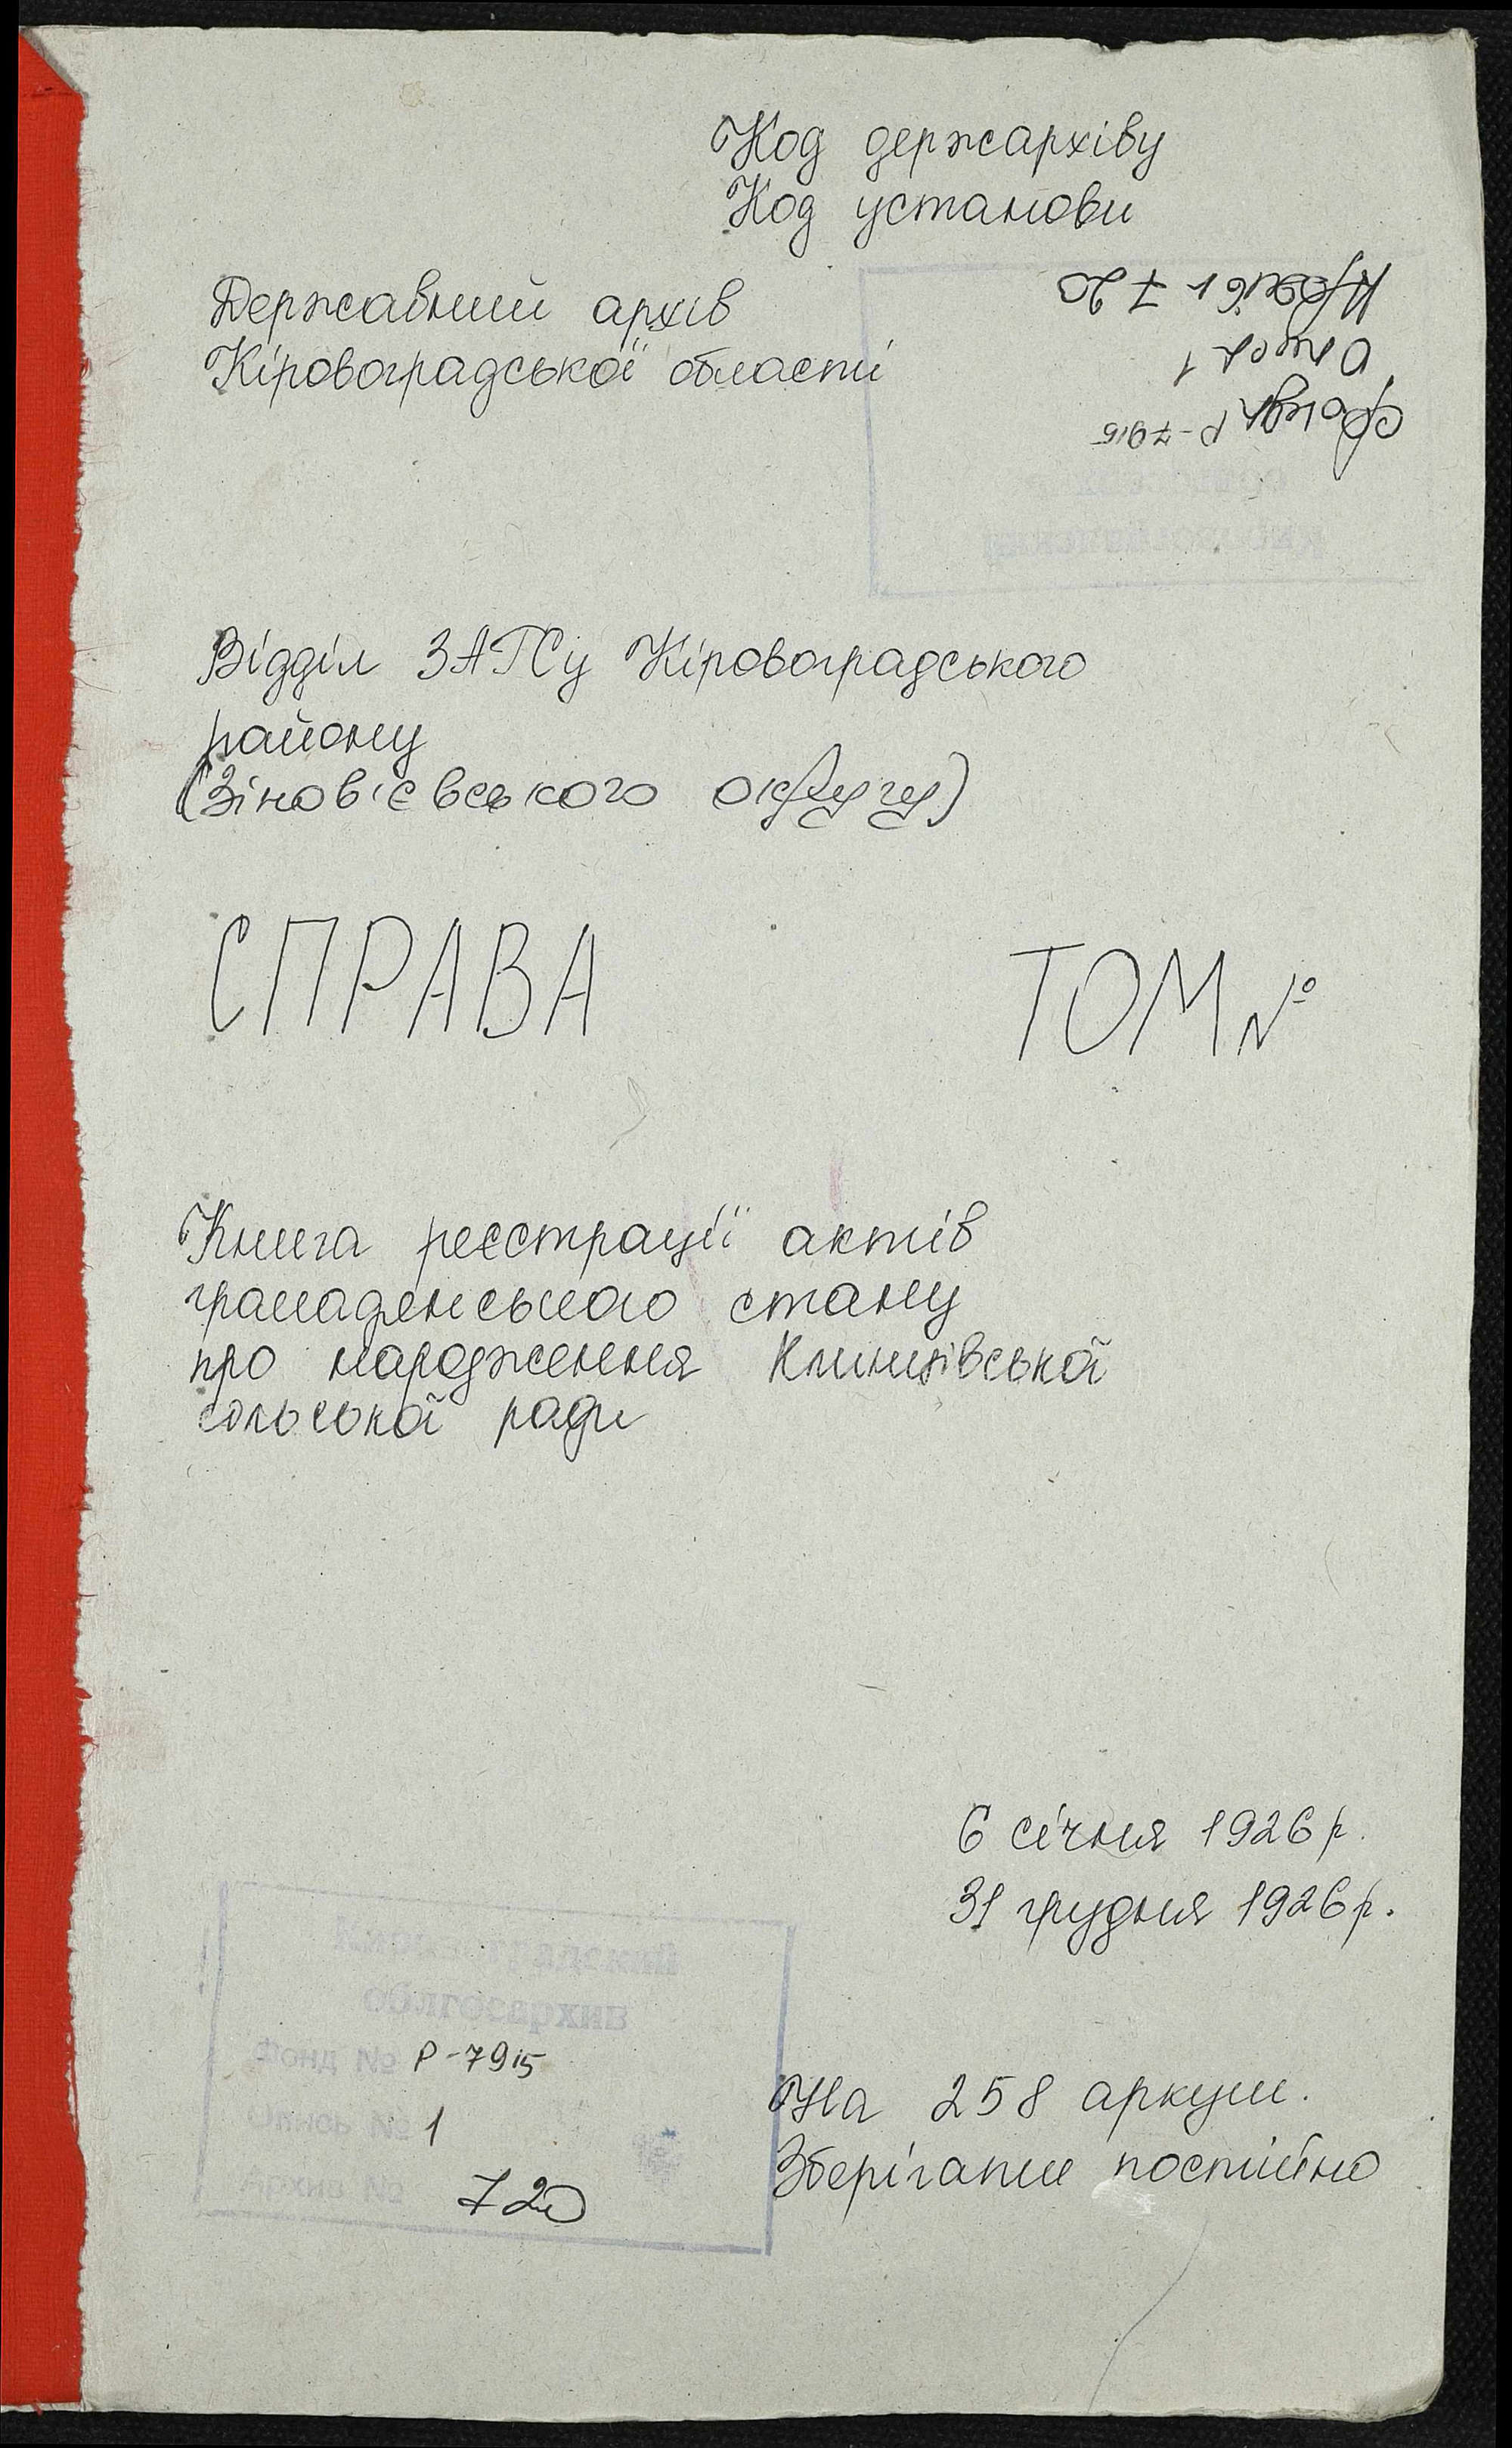 Код держархіву
Код установи
Державний архів
Кіровоградської області
Архів 1 720
Опись 1
Фонд Р-7915
Відділ ЗАГСу Кіровоградського
району
(Зінов'євського округу)
СПРАВА
ТОМ №
Книга реєстрації актів
громадянського стану
про народження Клинцівської
сільської ради
6 січня 1926 р.
31 грудня 1926 р.
облгосархив
Фонд № Р-7915
Опись № 1
Архив № 720
На 258 аркуш.
Зберігати постійно